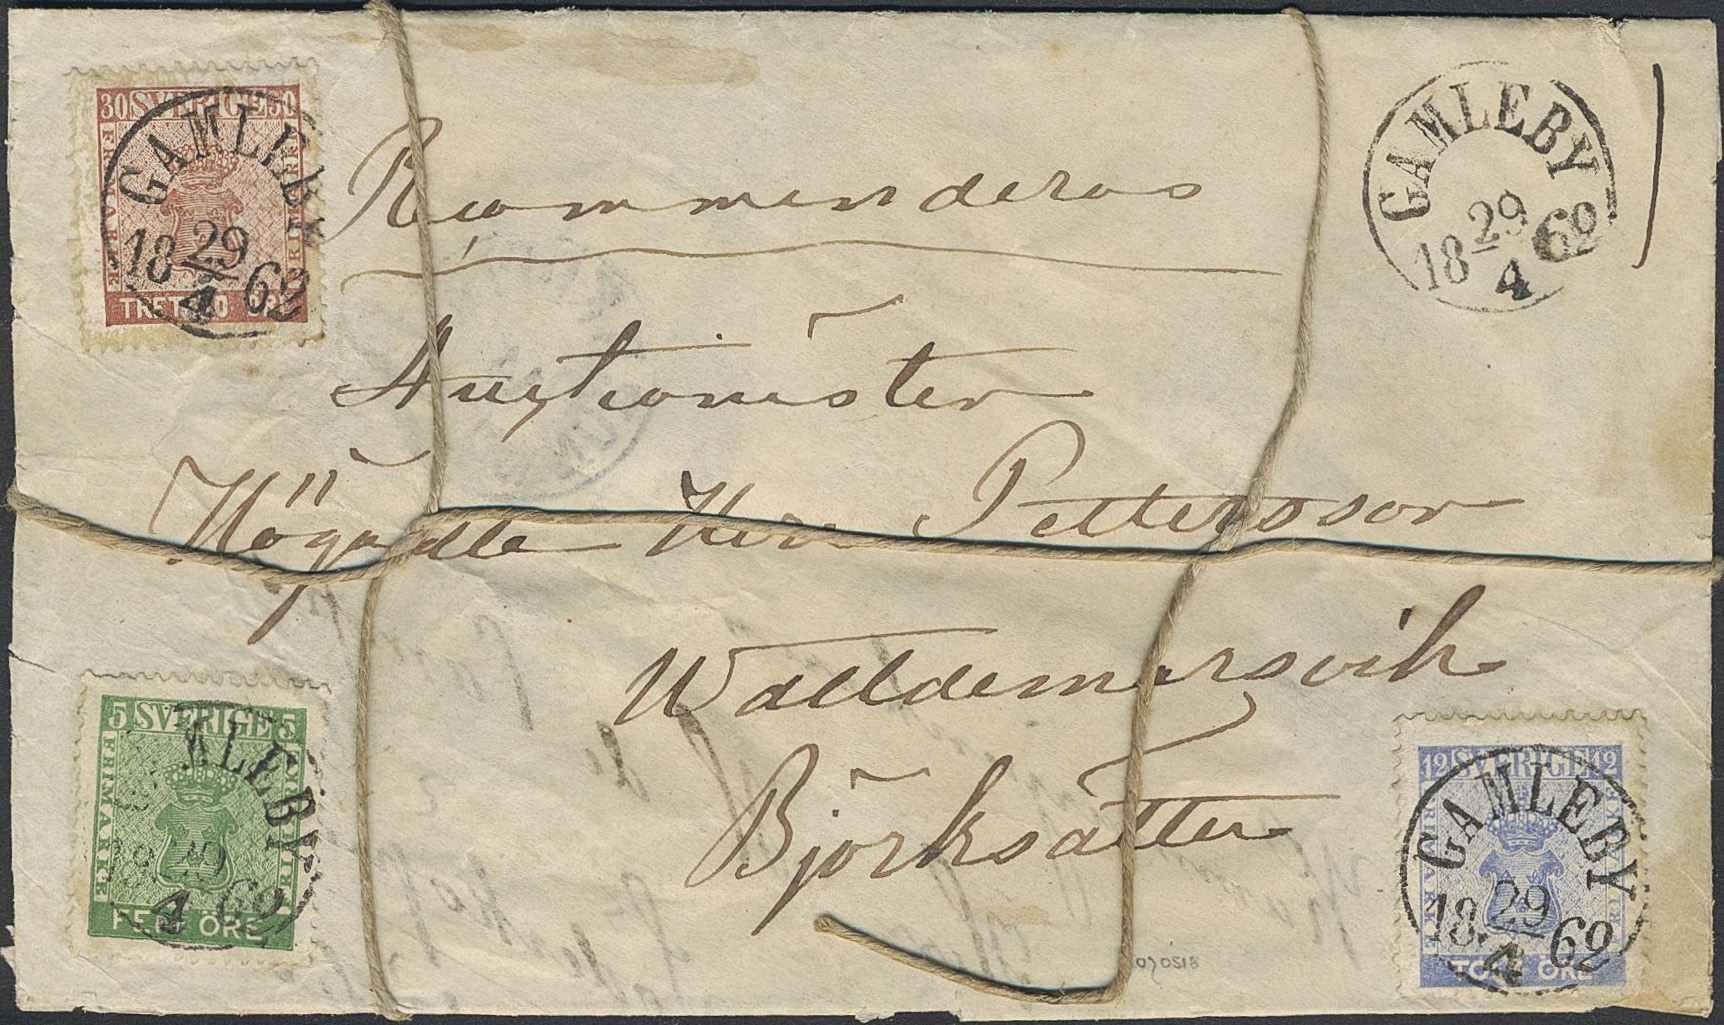 30 SVERIGE 30
FRIMÄRKE
TRETTIO ÖRE
GAMLEBY
29
18 62
4
GAMLEBY
29
18 62
4
Recommenderas
Auctionister
Högädle Herr Pettersson
Waldemarsvik
Björksätter
5 SVERIGE 5
FRIMÄRKE
FEM ÖRE
GAMLEBY
29
18 62
4
12 SVERIGE 12
FRIMÄRKE
TOLF ÖRE
GAMLEBY
29
18 62
4
070518